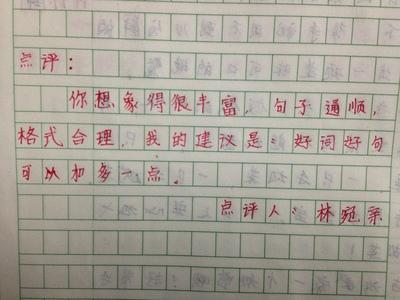 点评：
你想象得很丰富，句子通顺，
格式合理，我的建议是：好词好句
可以加多一点。
点评人：林宛亲